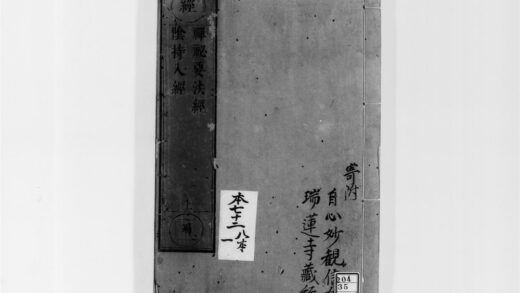 經
禪秘要法經
陰持入經
本七十二八本
一
寄附
自心妙観信
瑞蓮寺藏
204
35